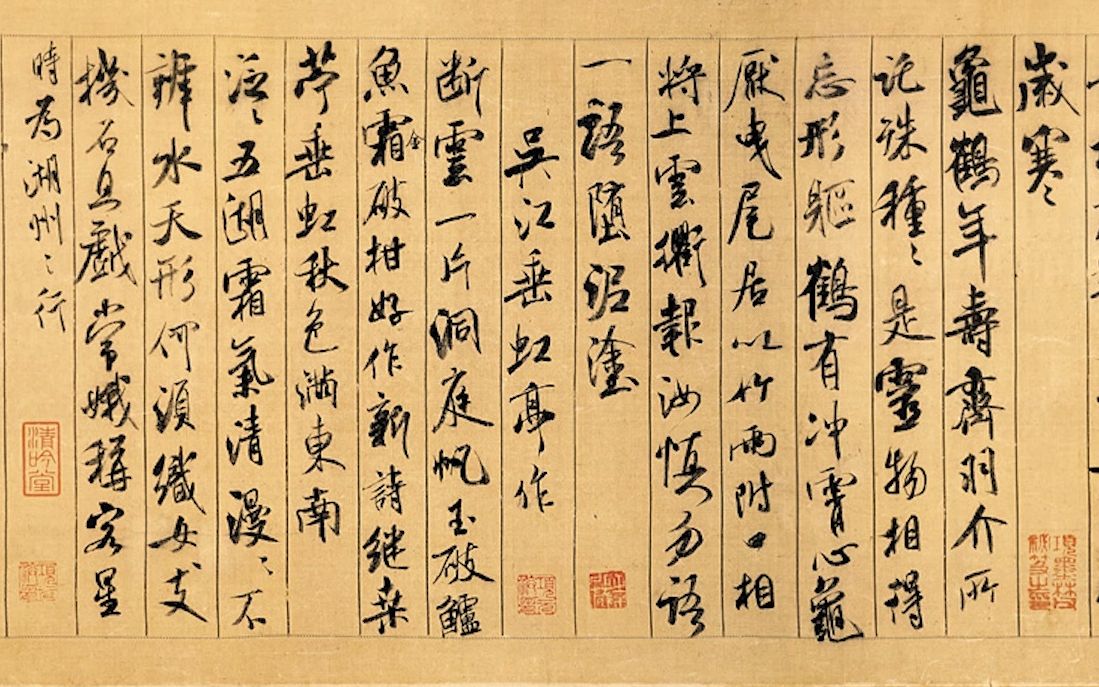 歲寒
龜鶴年壽齊羽介所
託殊種〻是靈物相得
忘形軀鶴有沖霄心龜
厭曳尾居以竹兩附口相
將上雲衢報汝慎勿語
一語墮泥塗
吳江垂虹亭作
断雲一片洞庭帆玉破鱸
魚霜金破柑好作新詩継桑
苧垂虹秋色滿東南
泛〻五湖霜氣清漫〻不
辨水天形何須織女支
機石且戲常娥稱客星
時為湖州之行
清吟堂